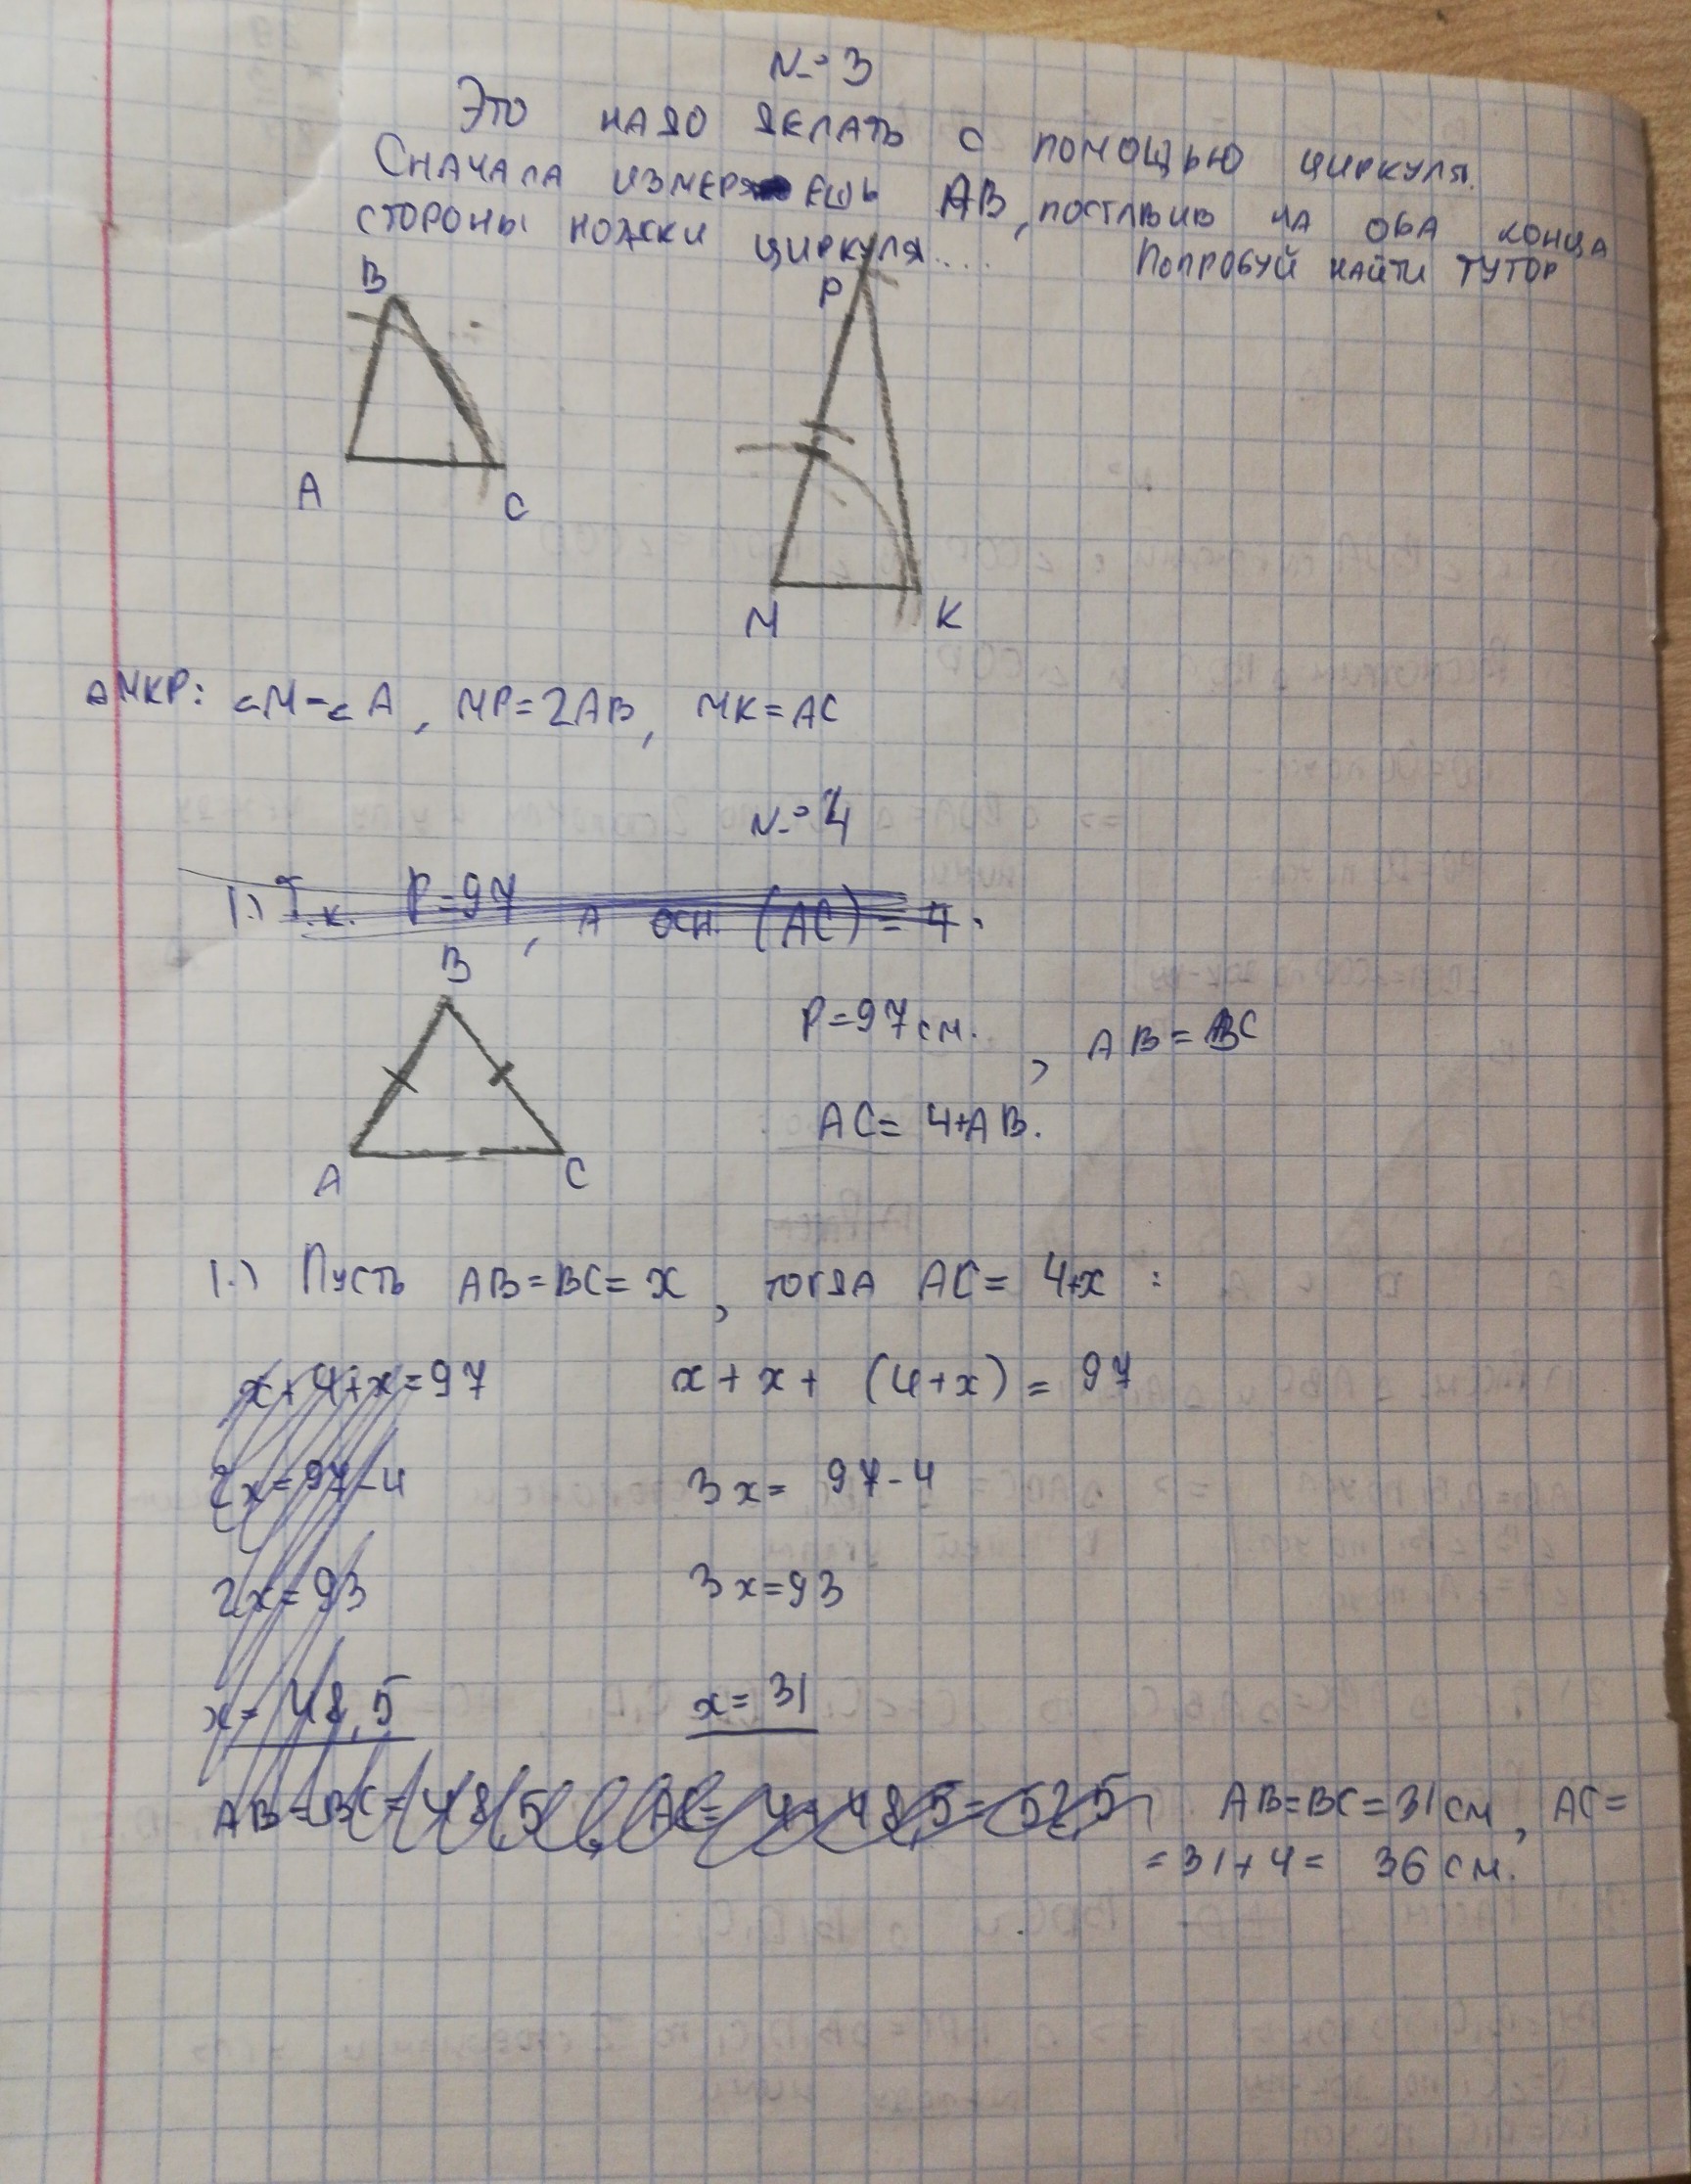 № 3
Это надо делать с помощью циркуля.
Сначала измеряешь AB, поставив на оба конца
стороны ножки циркуля.... Попробуй найти тутор
B
P
A
C
M
K
△MKP: ∠M=∠A, MP=2AB, MK=AC
№ 4
1.) Т.к. P=97, а осн. (AC) = 4.
B
P=97см., AB=BC
AC= 4+AB.
A
C
1.) Пусть AB=BC=x, тогда AC= 4+x :
x+4+x=97
x+x+(4+x)=97
2x=97-4
3x=97-4
2x=93
3x=93
x=48,5
x=31
AB=BC=48,5, AC=4+48,5=52,5
AB=BC=31см, AC=
=31+4= 36см.